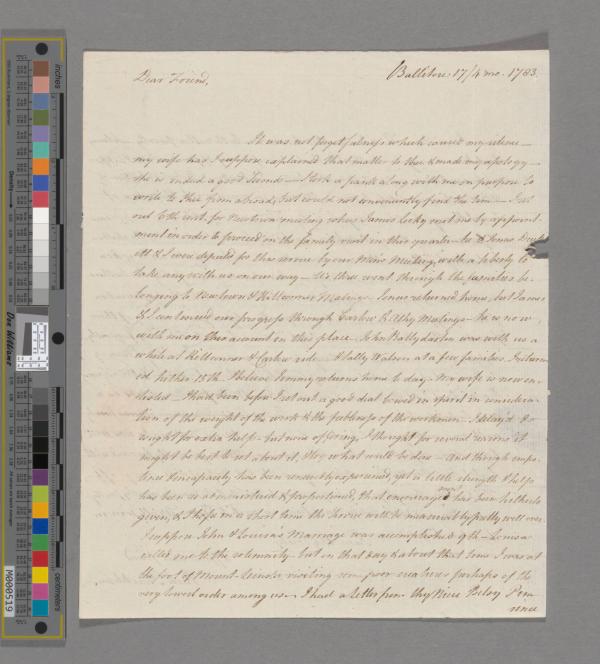 Ballitore 17/4 mo. 1783.
Dear Friend,
It was not forgetfulness which caused my silence —
my wife has I suppose explained that matter to thee & made my apology —
she is indeed a good Friend — I took a paper along with me on purpose to
write to thee from abroad, but could not conveniently find the time — I set
out 6th inst. for Newtown meeting where James met me by appoint-
ment in order to proceed on the family visit in this quarter — he & Jonas
& I were deputed for this service by our Mo's Meeting, with a liberty to
take any with us on our way — We three went through the families be-
longing to Newtown & Kilconner Meetings. Jonas returned home, but James
& I continued our progress through Carlow & Athy Meetings — he is now
with me on this account in this place. John was with us a
while at Kilconner & Carlow side & Watson at a few families. I return-
ed hither 15th. I believe Jemmy returns home to day. My wife is now en-
listed — I had been before I set out a good deal bowed in spirit in considera-
tion of the weight of the work & the feebleness of the workmen. I delay'd &
sought for extra help — but none offering, I thought for several reasons it
might be best to set about it, & try what could be done — and though emp-
tiness & incapacity has been renewedly experienced, yet a little strength & help
has been so administered & proportioned, that encouragemt. has been hitherto
given, & I hope in a short time the service will be measurably pretty well over.
I suppose John & Louisa's Marriage was accomplished 9th — Louisa
called me to the solemnity but on that day & about that time I was at
the foot of Mount Leinster visiting some poor creatures perhaps of the
very lowest order among us — I had a letter from thy Niece Betsy Pim
since
inches
centimetres
Density
Don Williams
M000519